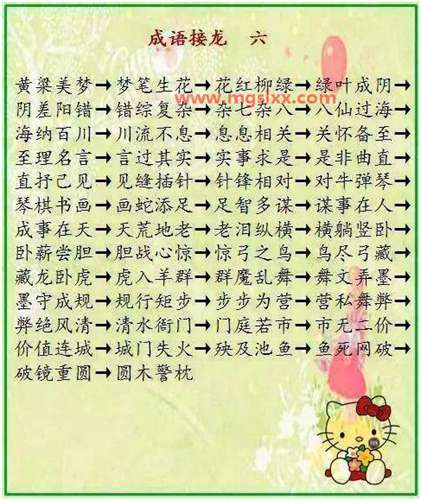 成语接龙 六
黄粱美梦→梦笔生花→花红柳绿→绿叶成阴→
www.mgslxx.com
阴差阳错→错综复杂→杂七杂八→八仙过海→
海纳百川→川流不息→息息相关→关怀备至→
至理名言→言过其实→实事求是→是非曲直→
直抒己见→见缝插针→针锋相对→对牛弹琴→
琴棋书画→画蛇添足→足智多谋→谋事在人→
成事在天→天荒地老→老泪纵横→横躺竖卧→
卧薪尝胆→胆战心惊→惊弓之鸟→鸟尽弓藏→
藏龙卧虎→虎入羊群→群魔乱舞→舞文弄墨→
墨守成规→规行矩步→步步为营→营私舞弊→
弊绝风清→清水衙门→门庭若市→市无二价→
价值连城→城门失火→殃及池鱼→鱼死网破→
破镜重圆→圆木警枕